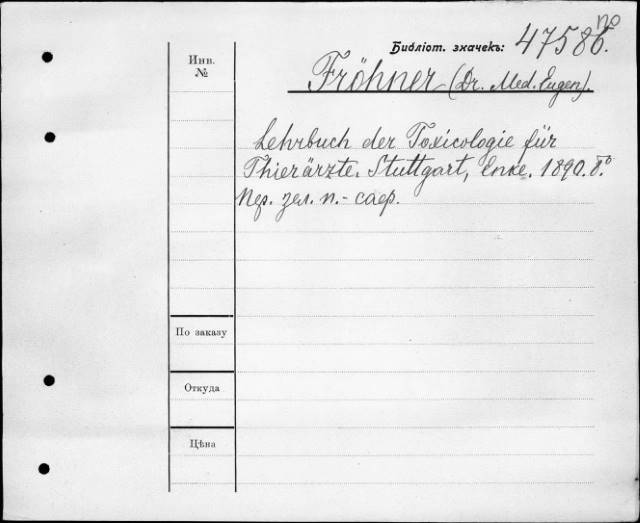 по
Библіот. значекъ: 47586.
Инв. №
Fröhner (Dr. Med. Eugen).
Lehrbuch der Toxicologie für
Thierärzte. Stuttgart, Enke. 1890. 8°
Пер. зел. п.-саф.
По заказу
Откуда
Цѣна